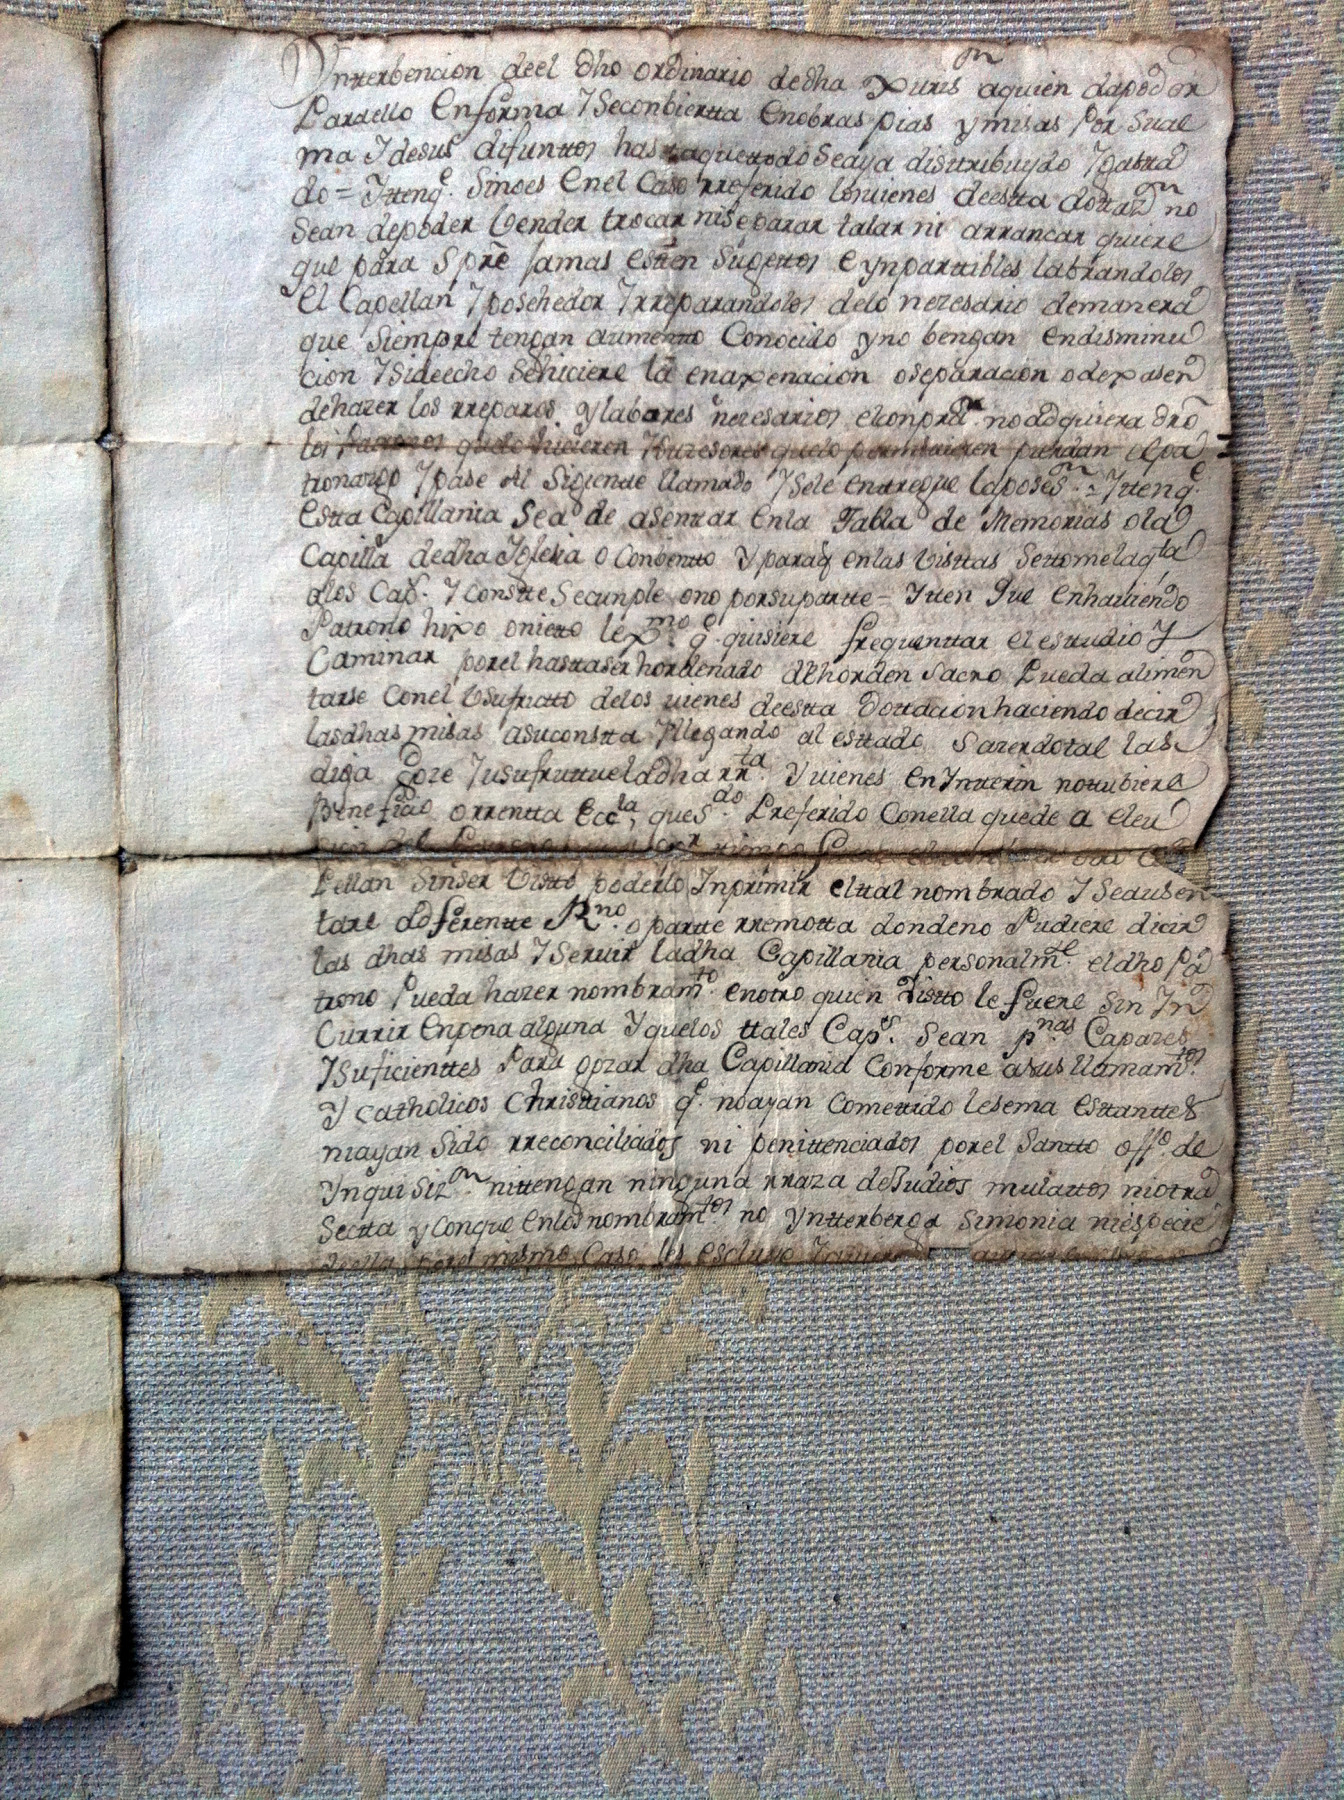 Ynterbencion de el dho ordinario de dha Xuris.on aquien dapoder
Para ello En forma Y Seconbiertta En obras pias y misas Por Sual
ma Y desus difunttos hasttaquettodo Seaya disttribuydo Y gasta
do = Ytten q.e Sinoes Enel Caso rreferido los vienes de estta dottaz.on no
Sean depoder bender trocar niseparar talar ni arrancar quiere
que para Spre Jamas estten Sugettos e ynparttibles labrandolos
el Capellan Y posehedor Y rreparandolos delo nezesario de manera
que Siempre tengan aumento Conocido y no bengan en disminu
cion Y si deecho Sehiciere la enaxenacion o separacion o dexasen
de hazer los rreparos y labores nezesarios el conprd.r no adquiera dro
los que lo hicieren Y suzesores quelo permitieren pierdan el pa
tronazgo Y pase al Siguiente llamado Y Sele entregue la poses.on = Ytten q.e
Estta Capillania Sea de asenttar En la Tabla de Memorias o la
Capilla de dha Yglesia o Conbentto Y paraq en las Visttas Settome la q.ta
a los Cap.s Y Constte Secunple o no por su partte = Ytten Que En haviendo
Patrono hixo o nietto lex.mo q.e quisiere frequenttar el estudio Y
Caminar por el hasttaser hordenado de horden Sacro Pueda alimen
tarse Con el Usufructto delos vienes de estta Dottacion haciendo decir
las dhas misas a su constta Y llegando al esttado Sazerdotal las
diga goze Y usufruttue la dha rr.ta Y vienes en Ynterin nottubiere
Beneficio o rrentta Ecc.la, ques.do Preferido Con ella quede a eleu
cion del
Pellan Sinser Vistto poderlo Ynprimir el tal nombrado Y Seausen
tare a diferentte R.no o partte rremotta dondeno Pudiere dicir
las dhas misas Y Servir la dha Capillania personalm.te el dho Pa
trono Pueda hazer nombram.to en otro quien Vistto le fuere Sin Yn
Currir En pena alguna Y quelos ttales Cap.s Sean p.nas Capazes
Y Suficienttes Para gozar dha Capillania Conforme a sus llamam.tos
Y Catholicos Christtianos q.e no ayan Comettido lesema esttanttes
ni ayan Sido rreconciliados ni penittenciados por el Santto off.o de
Ynquisiz.on nittengan ninguna rraza de Judios mulattos ni otra
Sectta y Conque En los nombram.tos no Yntterbenga Simonia ni especie
de ella por el mismo Caso los escluyo